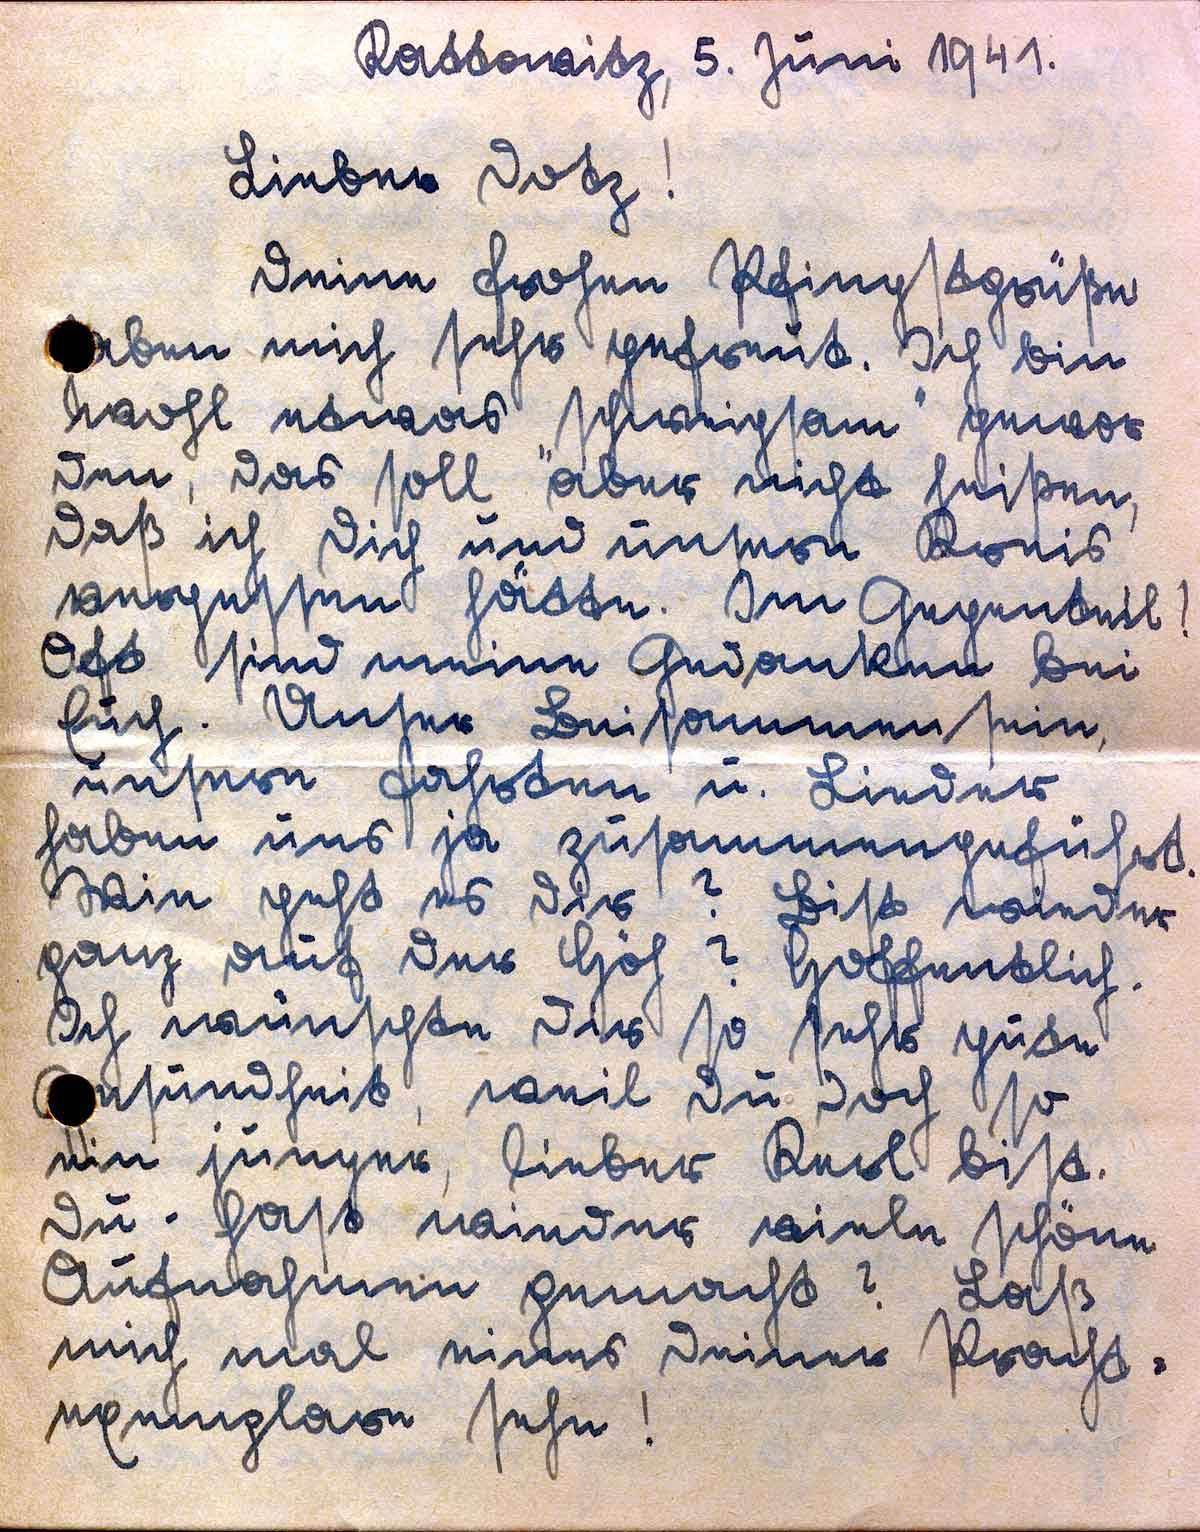 Kattowitz, 5. Juni 1941.
Lieber Dotz!
Deine frohen Pfingstgrüße
haben mich sehr gefreut. Ich bin
wohl etwas "schweigsam" gewor
den, das soll aber nicht heißen,
daß ich Dich und unsern Kreis
vergessen hätte. Im Gegenteil!
Oft sind meine Gedanken bei
Euch. Unser Beisammensein,
unsere Fahrten u. Lieder
haben uns ja zusammengeführt.
Wie geht es Dir? Bist wieder
ganz auf der Höh? Hoffentlich.
Ich wünschte Dir so sehr gute
Gesundheit, weil Du doch so
ein junger, lieber Kerl bist.
Du. Hast wieder viele schöne
Aufnahmen gemacht? Laß
mich mal eines Deiner Pracht-
exemplare sehn!